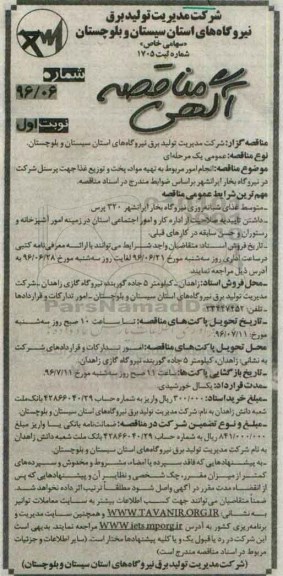 شرکت مدیریت تولید برق
نیروگاه‌های استان سیستان و بلوچستان
«سهامی خاص»
شماره ثبت ۱۷۰۵
آگهی مناقصه
شماره
۹۶/۰۶
نوبت اول
مناقصه گزار: شرکت مدیریت تولید برق نیروگاه‌های استان سیستان و بلوچستان.
نوع مناقصه: عمومی یک مرحله‌ای
موضوع مناقصه: انجام امور مربوط به تهیه مواد، پخت و توزیع غذا جهت پرسنل شرکت
در نیروگاه بخار ایرانشهر براساس ضوابط مندرج در اسناد مناقصه.
مهم‌ترین شرایط عمومی مناقصه
ـ متوسط غذای شبانه‌روزی نیروگاه بخار ایرانشهر ۳۲۰ پرس
ـ داشتن تأییدیه صلاحیت از اداره کار و امور اجتماعی استان در زمینه امور آشپزخانه و
رستوران و حسن سابقه در کارهای قبلی.
ـ تاریخ فروش اسناد: متقاضیان واجد شرایط می‌توانند با ارائه معرفی‌نامه کتبی
در ساعات اداری روز سه‌شنبه مورخ ۹۶/۰۶/۲۱ لغایت روز سه‌شنبه مورخ ۹۶/۰۶/۲۸ به
آدرس ذیل مراجعه نمایند.
ـ محل فروش اسناد: زاهدان ـ کیلومتر ۵ جاده گوربند، نیروگاه گازی زاهدان ـ شرکت
مدیریت تولید برق نیروگاه‌های استان سیستان و بلوچستان ـ امور تدارکات و قراردادها
ـ تلفن:
ـ تاریخ تحویل پاکت‌های مناقصه: تا ساعت ۱۰ صبح روز سه‌شنبه
مورخ ۹۶/۰۷/۱۱.
محل تحویل پاکت‌های مناقصه: امور تدارکات و قراردادهای شرکت
به نشانی: زاهدان، کیلومتر ۵ جاده گوربند، نیروگاه گازی زاهدان.
ـ تاریخ بازگشایی پاکت‌ها: ساعت ۱۱ صبح روز سه‌شنبه مورخ ۹۶/۷/۱۱.
ـ مدت قرارداد: یکسال خورشیدی.
ـ مبلغ خرید اسناد: ۳۰۰/۰۰۰ ریال واریز به شماره حساب ۴۲۸۶۶۰۴۰/۲۹ بانک ملت
شعبه دانش زاهدان به نام شرکت مدیریت تولید برق نیروگاه‌های استان سیستان و بلوچستان.
ـ مبلغ و نوع تضمین شرکت در مناقصه: ضمانت‌نامه بانکی یا واریز مبلغ
۸۴۱/۰۰۰/۰۰۰ ریال به شماره حساب ۴۲۸۶۶۰۴۰/۲۹ بانک ملت شعبه دانش زاهدان
به نام شرکت مدیریت تولید برق نیروگاه‌های استان سیستان و بلوچستان.
به پیشنهادهایی که فاقد سپرده یا امضاء، مشروط و مخدوش و سپرده‌های
کمتر از میزان مقرر، چک شخصی و نظایر آن و پیشنهادهایی که پس
از انقضاء مدت مقرر در آگهی واصل شود مطلقاً ترتیب اثر داده نخواهد شد.
ضمناً متقاضیان می‌توانند جهت کسب اطلاعات بیشتر به سایت معاملات توانیر
به نشانی: WWW.TAVANIR.ORG.IR و همچنین سایت مدیریت و
برنامه‌ریزی کشور به آدرس www.iets.mporg.ir مراجعه نمایند. بدیهی است
این شرکت در رد یا قبول یک و یا کلیه پیشنهادها مختار است. (سایر اطلاعات و جزئیات
مربوط در اسناد مناقصه مندرج است)
(شرکت مدیریت تولید برق نیروگاه‌های استان سیستان و بلوچستان)